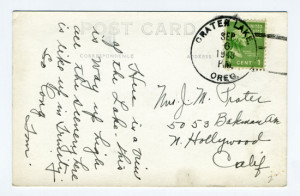 POST CARD
CRATER LAKE
SEP
6
P.M.
OREG.
1¢
Here is a view
of the Lake - this
is way up high
and the scenery here
is like up in Trinity.
So Long
Tom.
Mrs. J. M. Prater
5053 Bakman Ave
N. Hollywood
Calif